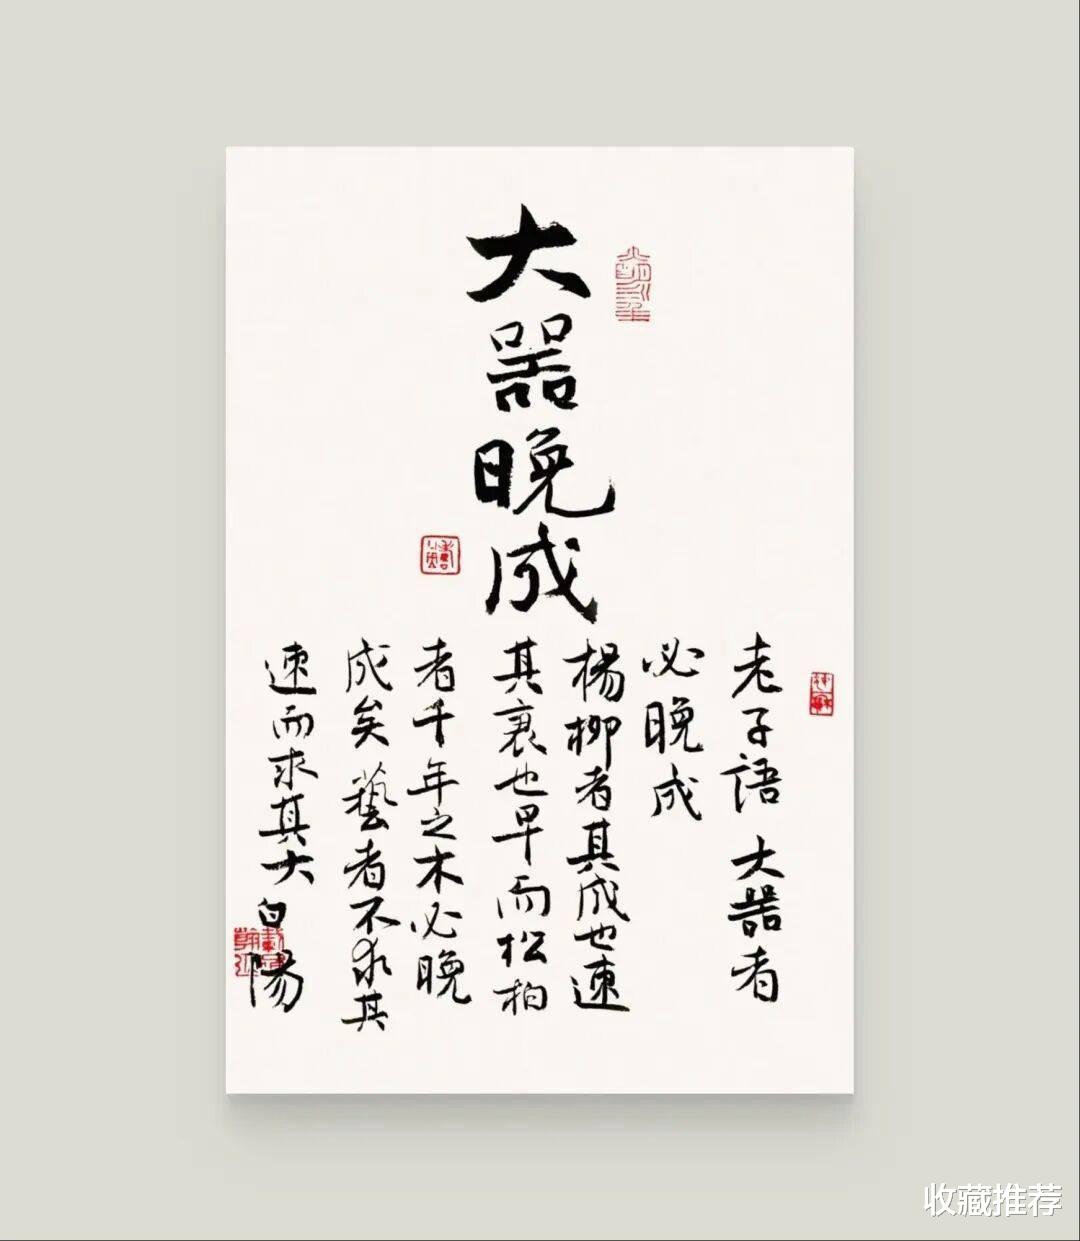 大器晚成
老子語大器者
必晚成
楊柳者其成也速
其衰也早而松柏
者千年之木必晚
成矣藝者不求其
速而求其大
白陽
收藏推荐